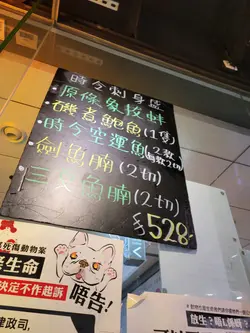 時令刺身盛
·原條象拔蚌
·磯煮鮑魚(1隻)
·時令空運魚(2款 每款2切)
·劍魚腩(2切)
·三文魚腩(2切)
$528-
死傷動物案
生命
決定不作起訴
唔告!
律政司,
放生?